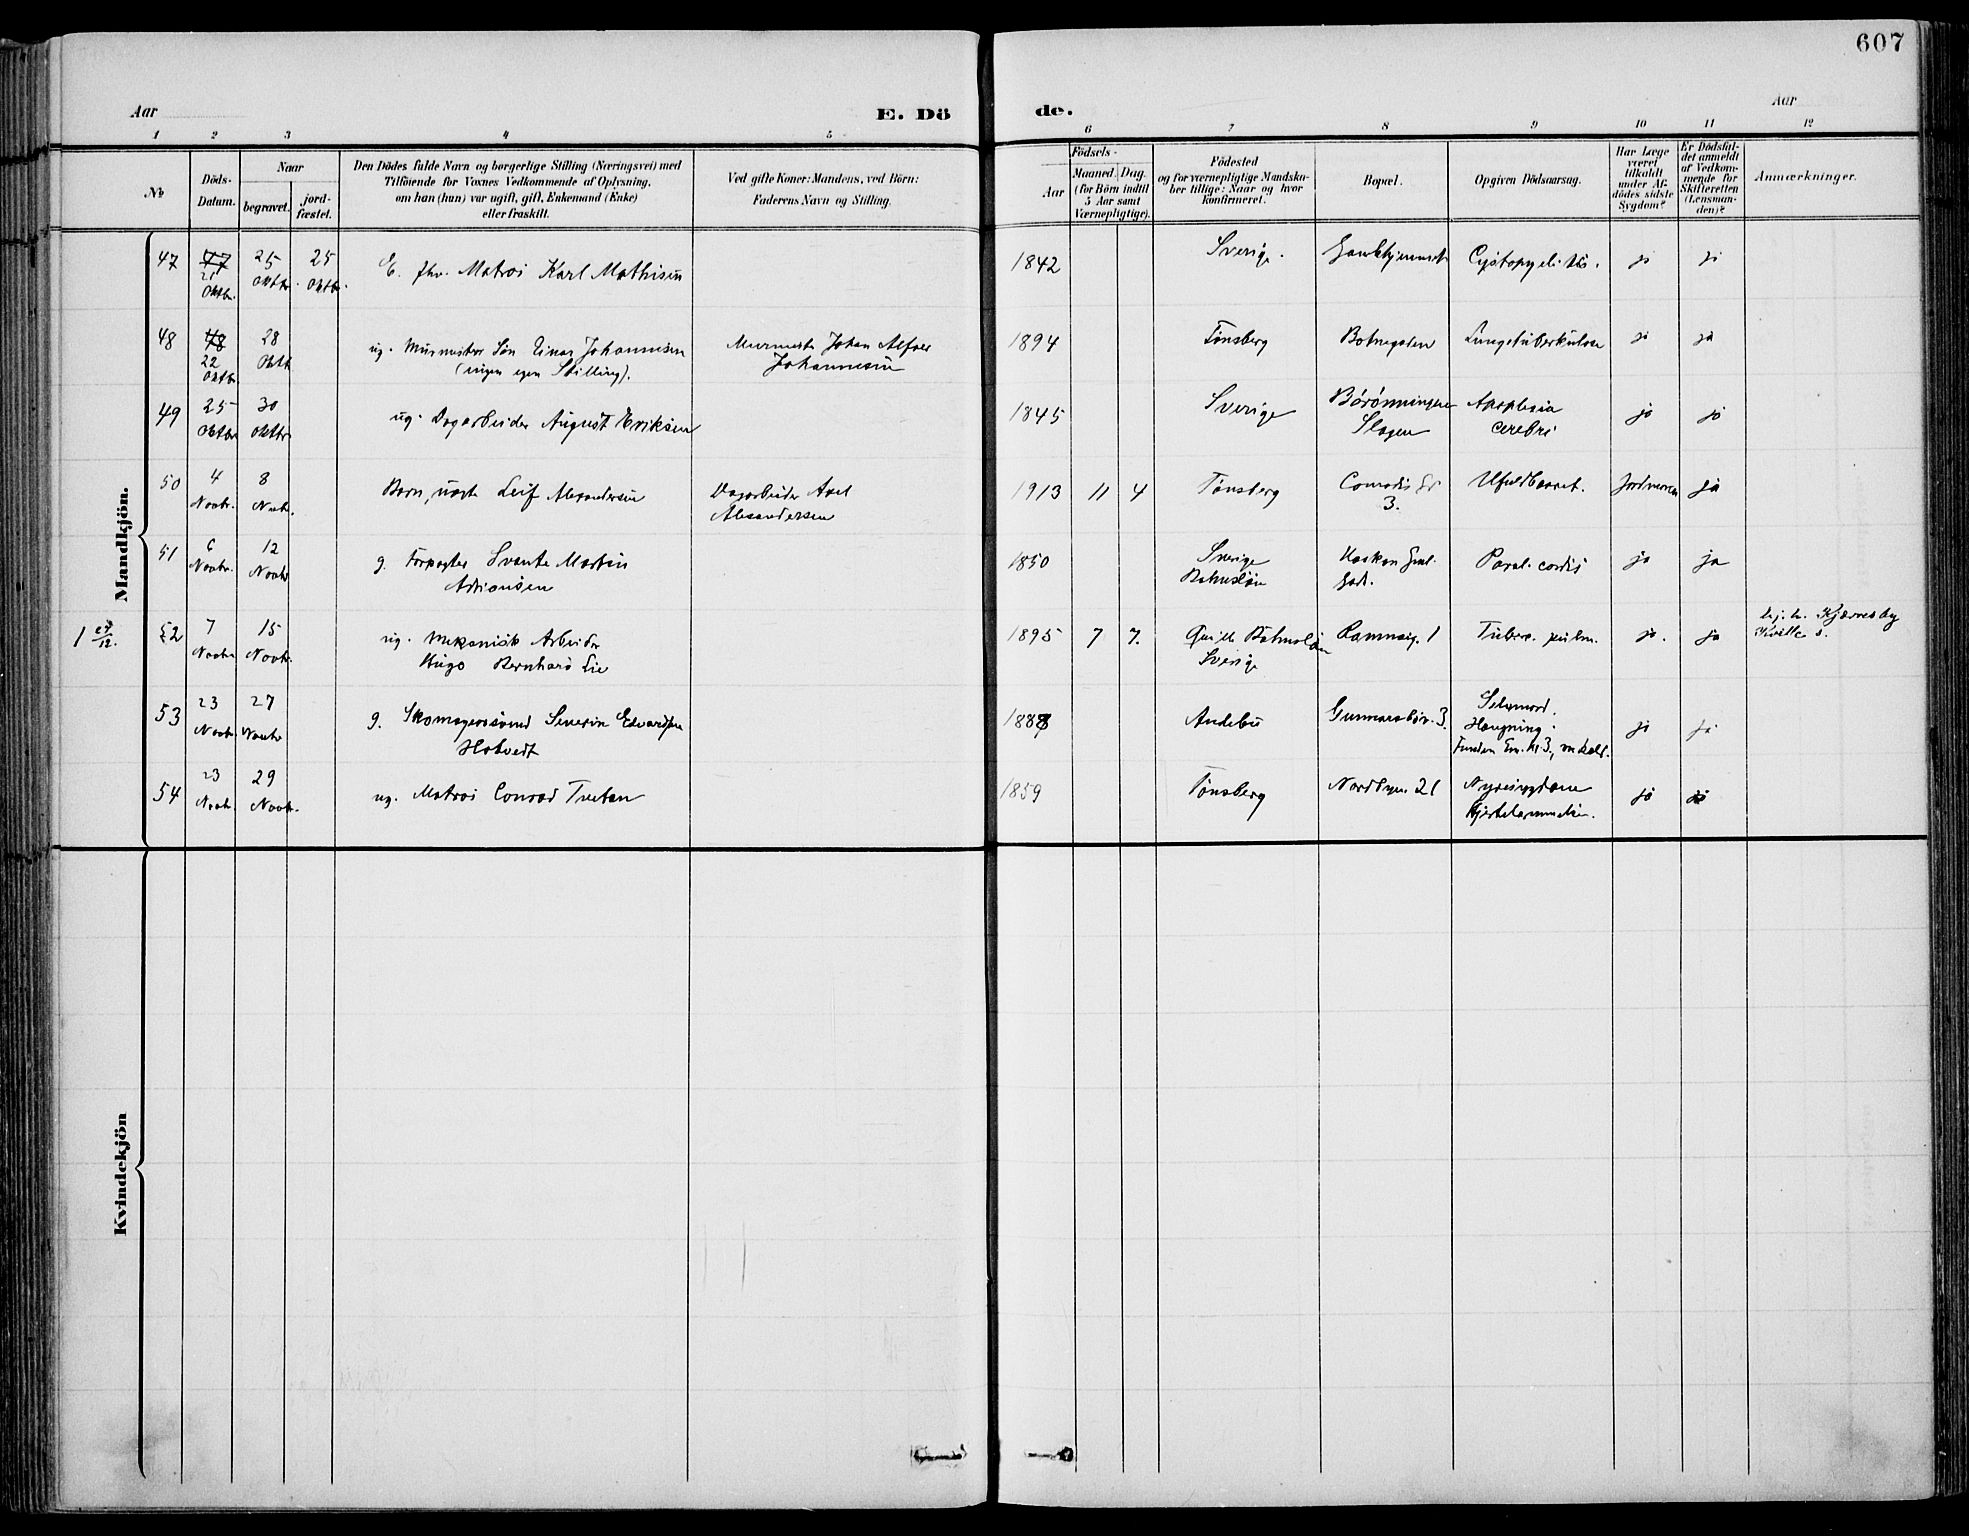 607
Aar
E. Dö
de.
Aar
1 2 3 4 5 6 7 8 9 10 11 12
No
Döds-
Datum.
Naar
begravet.
jord-
fæstet.
Den Dödes fulde Navn og borgerlige Stilling (Næringsvei) med
Tilföiende for Voxnes Vedkommende af Oplysning,
om han (hun) var ugift, gift, Enkemand (Enke)
eller fraskilt.
Ved gifte Koner: Mandens, ved Börn:
Faderens Navn og Stilling.
Födsels-
Aar
Maaned. Dag.
(for Börn indtil
5 Aar samt
Værnepligtige).
Födested
og for værnepligtige Mandska-
ber tillige: Naar og hvor
konfirmeret.
Bopæl.
Opgiven Dödsaarsag.
Har Læge
været
tilkaldt
under Af-
dödes sidste
Sygdom?
Er Dödsfal-
det anmeldt
af Vedkom-
mende for
Skifteretten
(Lensman-
den)?
Anmærkninger.
Mandkjön.
47 21 Oktbr. 25 Oktbr. 25 Oktbr. E. fhv. Matros Karl Mathisen 1842 Sverige. Cystopyelitis. ja ja
48 22 Oktbr. 28 Oktb ug. Murmester Søn Einar Johannesen
(ingen egen Stilling).
Murmester Johan Alfred
Johannesen
1894 Tønsberg Lungetuberkulose ja ja
49 25 Oktbr 30 Oktbr ug. Dagarbeider August Eriksen 1845 Sverige
Slagen
Apoplexia
cerebri
jo jo
50 4 Novbr. 8 Novbr. Barn, uægte Leif Alexandersen
Dagarbeider Axel
Alexandersen
1913 11 4 Tønsberg
Conradis Gd
3.
Ufuldbaaret. Jordmoren ja
51 6 Novbr. 12 Novbr g. Forpagter Svante Martin
Adriansen
1850 Sverige
Bahuslän
Haakon Gml.
Gade.
Paral. cordis ja ja
1 27/12.
52 7 Novbr 15 Novbr. ug. Mekanisk Arbeider
Hugo Bernhard Lie
1895 7 7. Qville Bahuslän
Sverige
Ramnsig. 1 Tuberc. pulm. ja. ja
Kville s.
53 23 Novbr. 27 Novbr g. Skomagersvend Severin Edvardsen
Hotvedt
1888 Andebu Gunnarsbör. 3.
Selvmord.
Hængning.
ja ja
54 23 Novbr. 29 Novbr. ug. Matros Conrad Tveten 1859 Tønsberg Nordbyen 21
Nyresygdom
Hjertelammelse.
ja ja
Kvindekjön